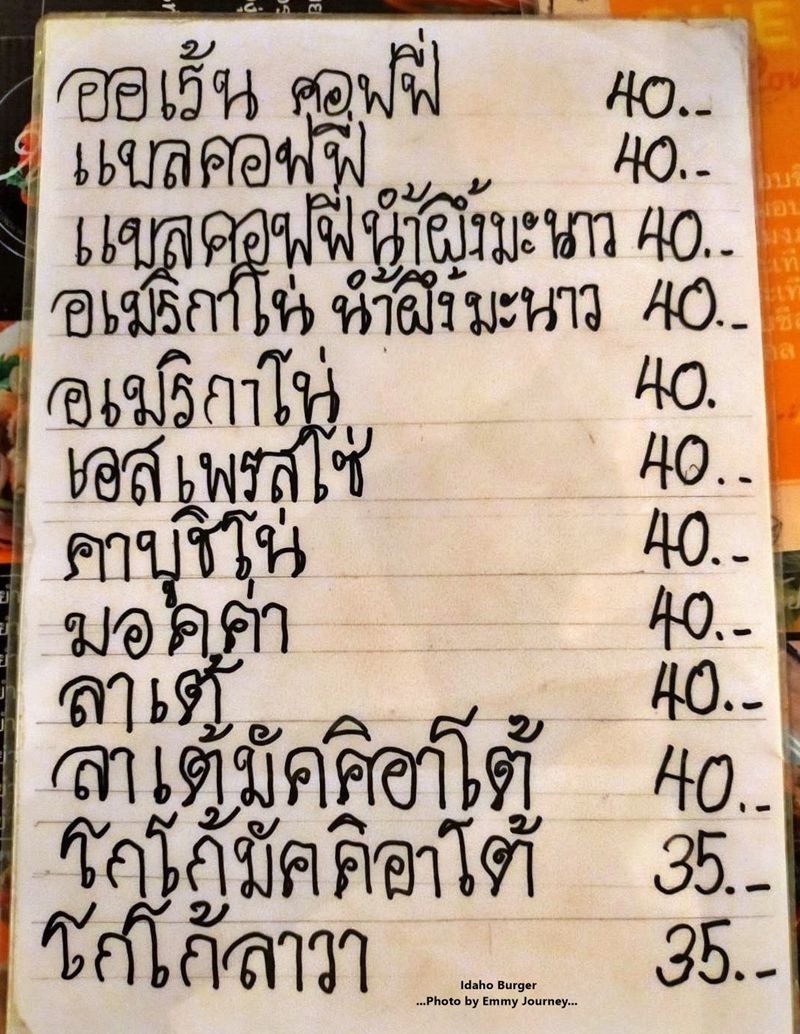 ออเร้น คอฟฟี่ 40.-
แบลคอฟฟี่ 40.-
แบลคอฟฟี่น้ำผึ้งมะนาว 40.-
อเมริกาโน่ น้ำผึ้งมะนาว 40.-
อเมริกาโน่ 40.
เอสเพรสโซ่ 40.-
คาบูชิโน่ 40.-
มอคค่า 40.-
ลาเต้ 40.-
ลาเต้มัคคิอาโต้ 40.-
โกโก้มัคคิอาโต้ 35.-
โกโก้ลาวา 35.-
Idaho Burger
...Photo by Emmy Journey...